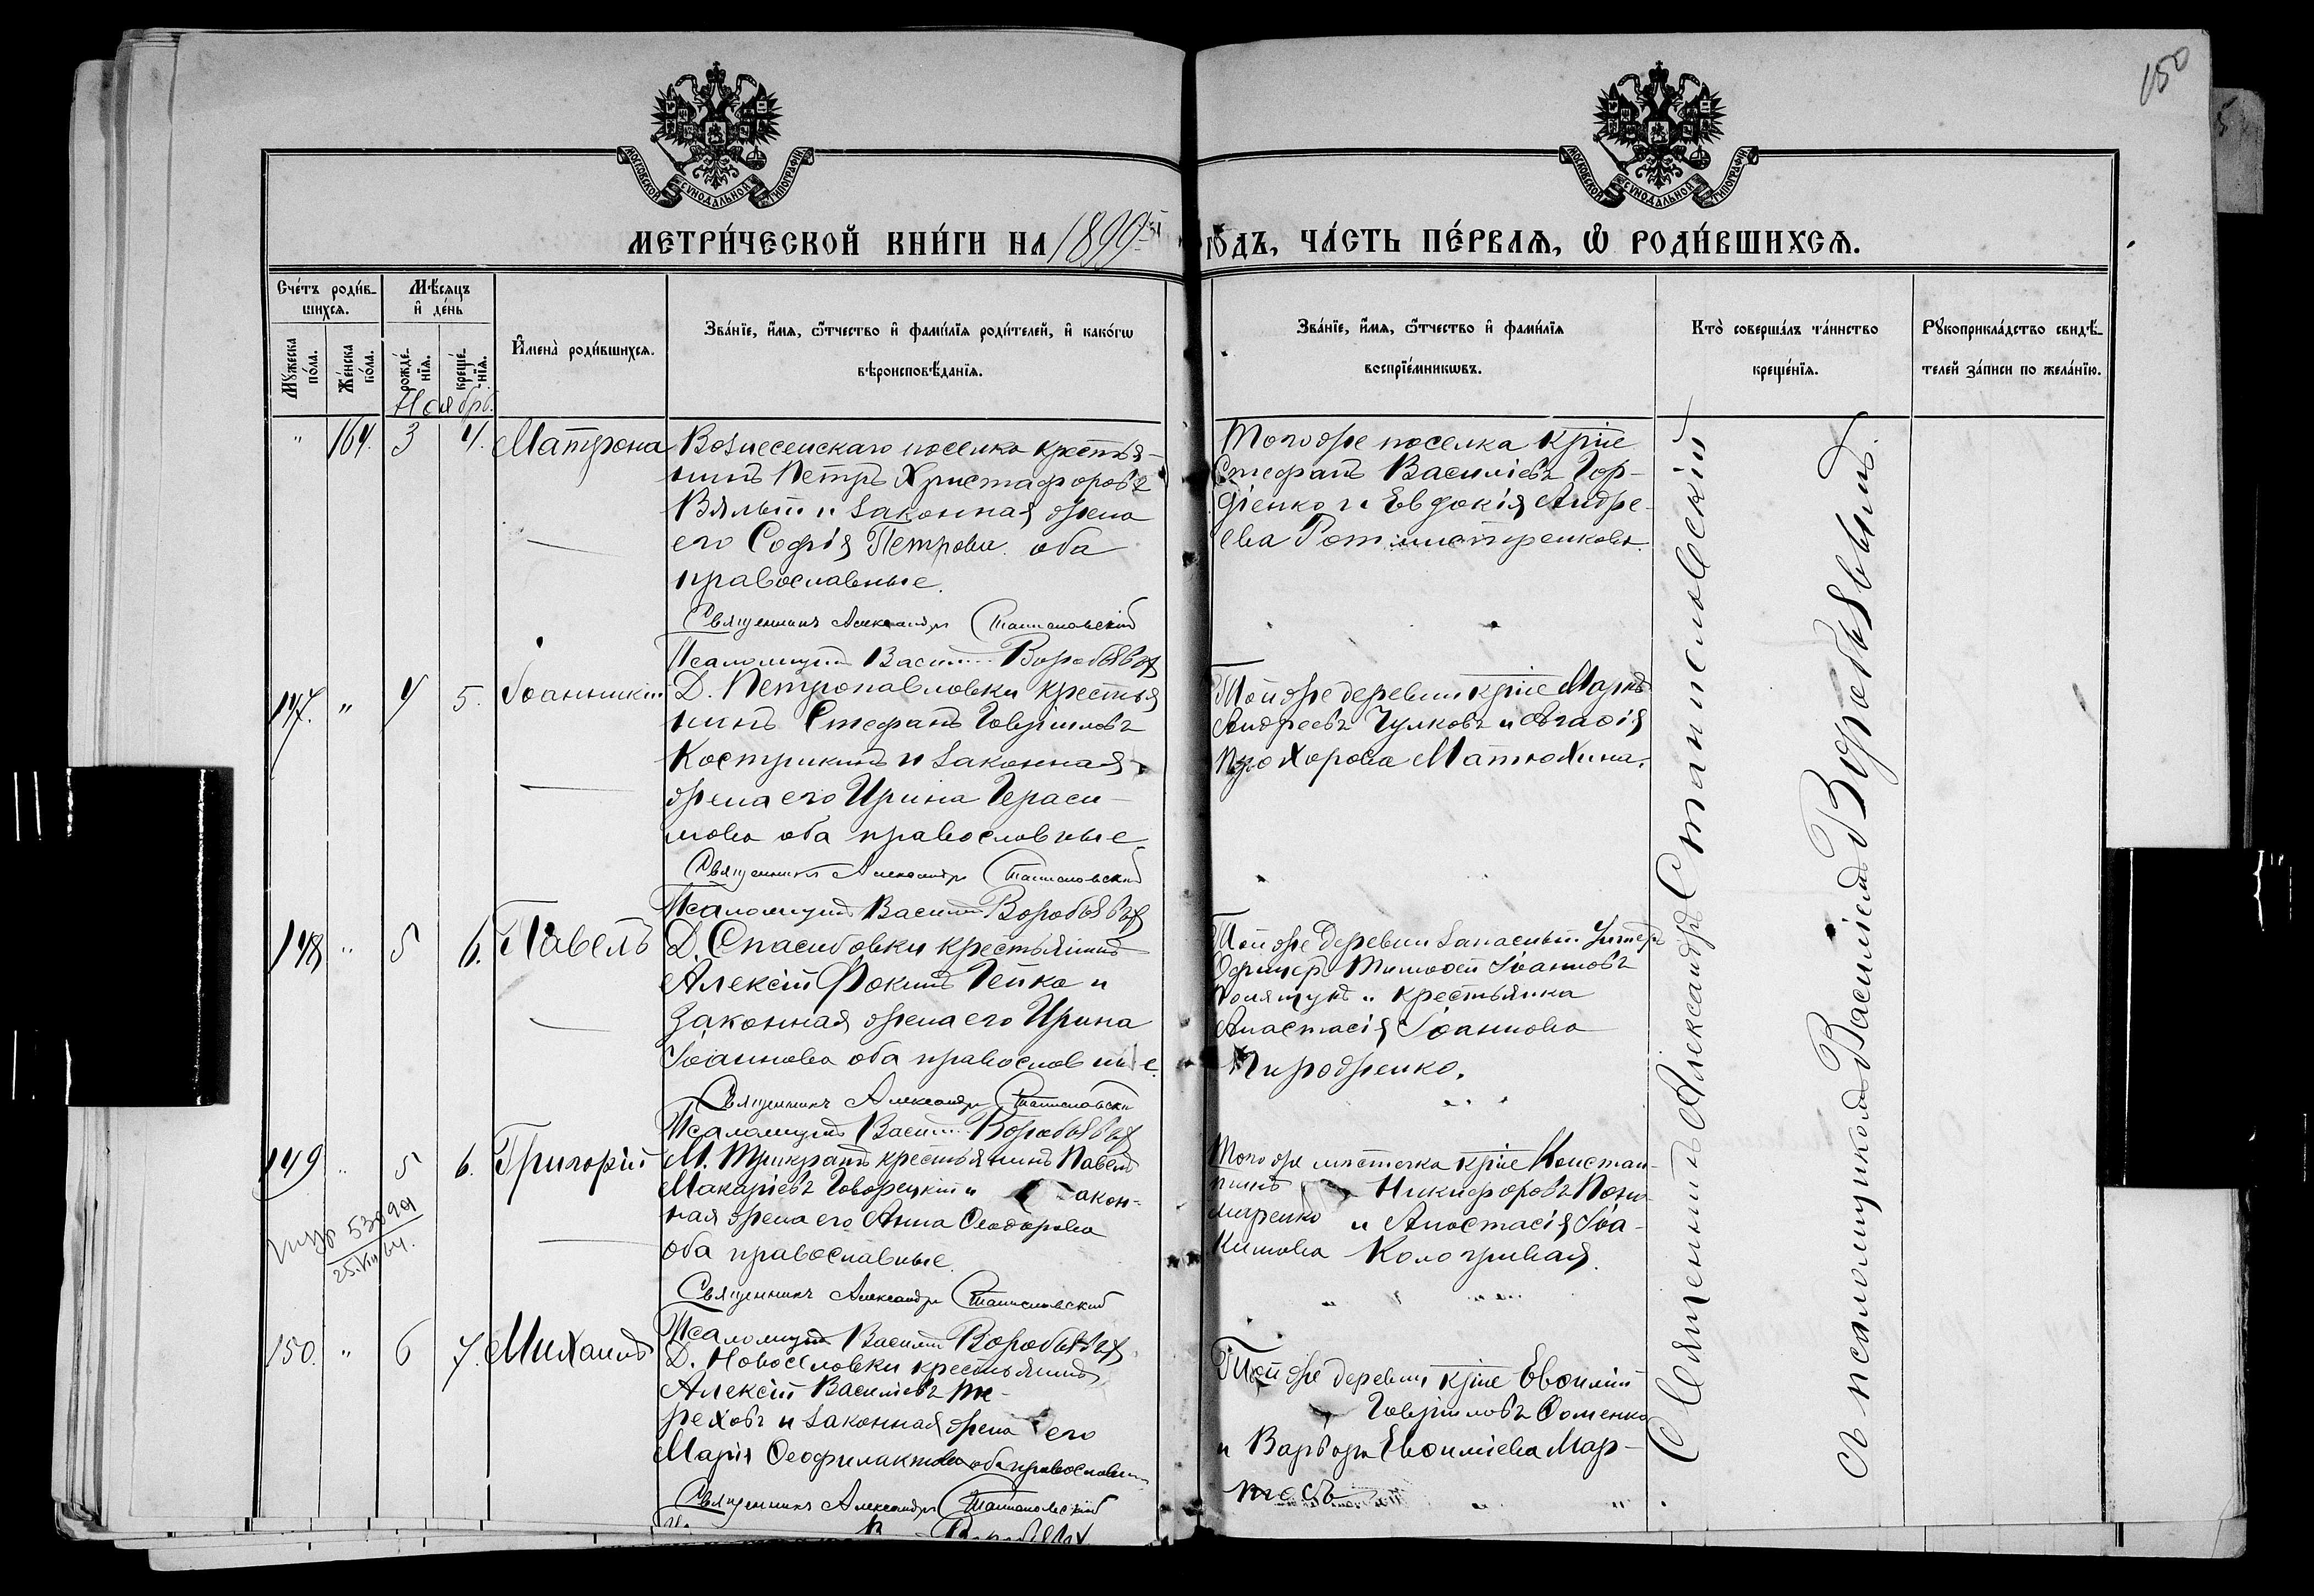 150
МОСКОВСКОЙ СѴНОДАЛЬНОЙ ТИПОГРАФІИ
МОСКОВСКОЙ СѴНОДАЛЬНОЙ ТИПОГРАФІИ
МЕТРИ́ЧЕСКОЙ КНИ́ГИ НА 1899й ГО́ДЪ, ЧА́СТЬ ПЕ́РВАѦ, Ѡ҆ РОДИ́ВШИХСѦ.
Сче́тъ роди́в-
шихсѧ.
Мѣ́сѧцъ
и҆ де́нь
Мꙋ́жеска по́ла.
Же́нска по́ла.
рожде́-
нїѧ.
креще́-
нїѧ.
И҆мена̀ роди́вшихсѧ.
Зва́нїе, и҆́мѧ, ѻ҆́тчество и҆ фами́лїѧ роди́телей, и҆ како́гѡ
вѣроисповѣ́данїѧ.
Зва́нїе, и҆́мѧ, ѻ҆́тчество и҆ фами́лїѧ
воспрїе́мникѡвъ.
Кто̀ соверша́лъ та́инство
креще́нїѧ.
Рꙋкоприкла́дство свидѣ́-
телей за́писи по жела́нїю.
Ноябрь.
" 164. 3 4. Матрона
Вознесенскаго поселка крестья-
нинъ Петръ Христофоровъ
Вялый и законная жена
его Софія Петрова оба
православные.
Священникъ Александръ Станиславскій
Псаломщикъ Василій Воробьевъ
Тогоже поселка крне
Стефанъ Василіевъ Гор-
діенко и Евдокія Андре-
ева
147. " 4 5. Іоанникій
Д. Петропавловки крестья
нинъ Стефанъ Гавріиловъ
Кострикинъ и законная
жена его Ирина Гераси-
мова оба православные
Священникъ Александръ Станиславскій
Псаломщикъ Василій Воробьевъ
Тойже деревни крне Маркъ
Андреевъ Чулковъ и Агаѳія
Прохорова Матюхина.
148 " 5 6. Павелъ
Д. Спасибовки крестьянинъ
Алексій Фокинъ Гейко и
законная жена его Ирина
Іоаннова оба православные.
Священникъ Александръ Станиславскій
Псаломщикъ Василій Воробьевъ
Тойже деревни запасный Унтеръ
Офицеръ Тимоѳей Іоанновъ
и крестьянка
Анастасія Іоаннова
149 " 5 6. Григорій
М. Трикратъ крестьянинъ Павелъ
Макаріевъ Говорецкій и закон-
ная жена его Анна Ѳеодорова
оба православные.
Священникъ Александръ Станиславскій
Псаломщикъ Василій Воробьевъ
Тогоже мѣстечка крне Констан-
тинъ Никифоровъ
и Анастасія Іоа-
кимова Кологривая.
25.VII 64.
150. " 6 7. Михаилъ
Д. Новоселовки крестьянинъ
Алексій Василіевъ Те-
реховъ и законная жена его
Марія Ѳеофилактова оба православные
Священникъ Александръ Станиславскій
Тойже деревни крне Евѳимій
Гавріиловъ Ѳоменко
и Варвара Евѳиміева Мар-
Священникъ Александръ Станиславскій
съ псаломщикомъ Василіемъ Воробьевымъ.